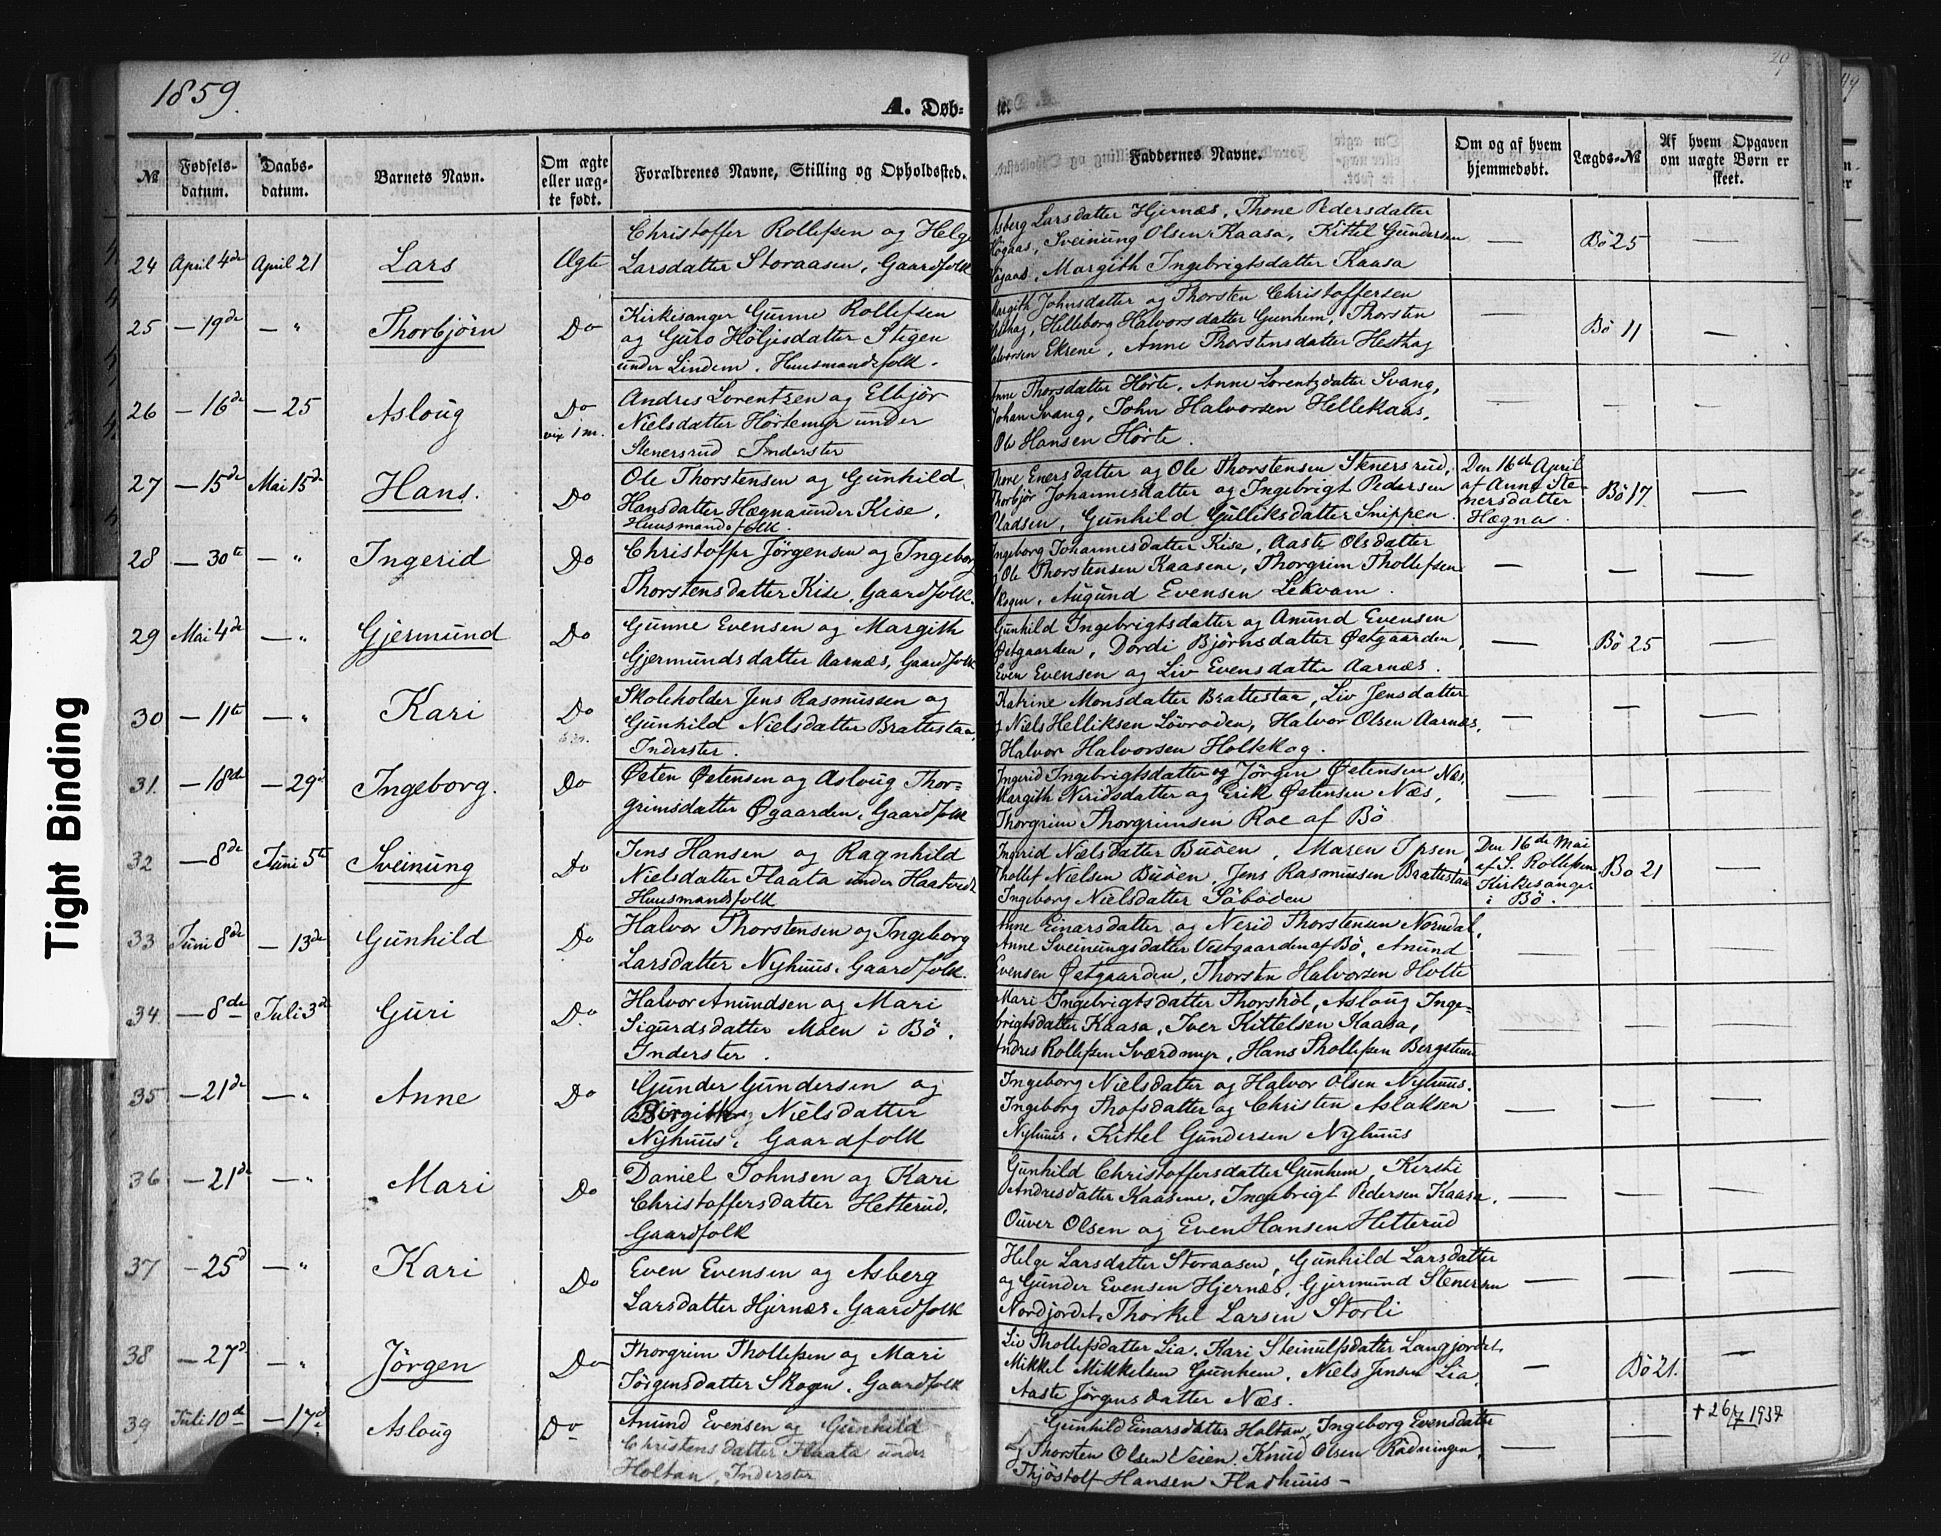 1859.
A. Døb-
№
Fødsels-
datum.
Daabs-
datum.
Barnets Navn.
Om ægte
eller uæg-
te født.
Forældrenes Navne, Stilling og Opholdssted.
24 April 4de April 21 Lars Ægte
Christoffer Rollefsen og Helge
Larsdatter Storaasen, Gaardfolk
25 — 19de — " Thorbjørn Do
Kirkesanger Gunne Rollefsen
og Guro Høljesdatter Stegen
under Lindem, Huusmandsfolk.
26 — 16de — 25 Asloug Do
vix 1 m.
Andres Lorentzen og Elbjør
Nielsdatter Hørtemyr under
Stenersrud Inderster
27 — 15de Mai 15de Hans. Do
Ole Thorstensen og Gunhild
Hansdatter Hægna under Kise,
Huusmandsfolk.
28 — 30te — " Ingerid Do
Christoffer Jørgensen og Ingeborg
Thorstensdatter Kise, Gaardfolk.
29 Mai 4de — " Gjermund Do
Gunne Evensen og Margith
Gjermundsdatter Aarnæs, Gaardfolk
30 — 11te — " Kari Do
Skoleholder Jens Rasmussen og
Gunhild Nielsdatter Brattestaa,
Inderster.
31. — 18de — 29de Ingeborg. Do
Østen Østensen og Asloug Thor-
grimsdatter Øgaarden, Gaardfolk
32 — 8de Juni 5te Sveinung Do
Jens Hansen og Ragnhild
Nielsdatter Flaata under Haatvedt
Huusmandsfolk
33 Juni 8de — 13de Gunhild Do
Halvor Thorstensen og Ingeborg
Larsdatter Nyhuus, Gaardfolk.
34. — 8de Juli 3de Guri Do
Halvor Anundsen og Mari
Sigurdsdatter Moen i Bø.
Inderster.
35 — 21de — " Anne Do
Gunder Gundersen og
Nielsdatter
Nyhuus, Gaardfolk
36 — 21de — " Mari Do
Daniel Johnsen og Kari
Christoffersdatter Hetterud,
Gaardfolk
37 — 25d — " Kari Do
Even Evensen og Asberg
Larsdatter Hjernæs, Gaardfolk
38 — 27d — " Jörgen Do
Thorgrim Thollefsen og Mari
Jørgensdatter Skogen, Gaardfolk
39 Juli 10de — 17de Asloug Do
Anund Evensen og Gunhild
Christensdatter Flaata under
Holtan, Inderster
te.
Faddernes Navne.
Om og af hvem
hjemmedøbt.
Lægds-№
Af hvem Opgaven
om uægte Børn er
skeet.
Asberg Larsdatter Hjernæs, Thone Pedersdatter
Høgaas, Sveinung Olsen Kaasa, Kittel Gundersen
Høgaas, Margith Ingebrigtsdatter Kaasa
— Bø 25 —
Margith Johnsdatter og Thorsten Christoffersen
Hesthag, Helleborg Halvorsdatter Gunhem, Thorsten
Halvorsen Ekrene, Anne Thorstensdatter Hesthag
— Bø 11 —
Anne Thorsdatter Hørte, Anne Lorentzdatter Svang,
Johan Svang, John Halvorsen Hellekaas,
Ole Hansen Hørte.
— — —
Thore Enersdatter og Ole Thorstensen Stenersrud,
Thorbjør Johannesdatter og Ingebrigt Pedersen
Pladsen, Gunhild Gulliksdatter Snippen.
Den 16de April
af Anne Ste-
nersdatter
Hægna.
Bø 17 —
Ingeborg Johannesdatter Kise, Aaste Olsdatter
og Ole Thorstensen Kaasene, Thorgrim Thollefsen
Skogen, Augund Evensen Lekvam.
— — —
Gunhild Ingebrigtsdatter og Anund Evensen
Østgaarden, Dordi Bjørnsdatter Østgaarden,
Even Evensen og Liv Evensdatter Aarnæs.
— Bø 25 —
Katrine Monsdatter Brattestaa, Liv Jensdatter
og Niels Helliksen Løvroden, Halvor Olsen Aarnæs,
Halvor Halvorsen Holtekog.
— — —
Ingerid Ingebrigtsdatter og Jørgen Østensen Næs,
Margith Neridsdatter og Erik Østensen Næs,
Thorgrim Thorgrimsen Roe af Bø
— — —
Ingerid Nielsdatter Buøen, Maren Ipsen,
Thollef Nielsen Buøen, Jens Rasmussen Brattestaa
Ingeborg Nielsdatter Søbøden
Den 16de Mai
af S. Rollefsen
Kirkesanger
i Bø.
Bø 21 —
Anne Einarsdatter og Nerid Thorstensen Nordal,
Anne Sveinungsdatter Vestgaarden af Bø, Anund
Evensen Østgaarden, Thorsten Halvorsen Holte
— — —
Mari Ingebrigtsdatter Thorshol, Asloug Inge-
brigtsdatter Kaasa, Iver Kittelsen Kaasa,
Andres Rollefsen Sværdmyr, Hans Thollefsen Bergsteen
— — —
Ingeborg Nielsdatter og Halvor Olsen Nyhuus.
Ingeborg Thofsdatter og Christen Aslaksen
Nyhuus, Kittel Gundersen Nyhuus
— — —
Gunhild Christoffersdatter Gunhem, Kirsti
Andresdatter Kaasene, Ingebrigt Pedersen Kaasa,
Ouver Olsen og Even Hansen Hetterud
— — —
Helge Larsdatter Storaasen, Gunhild Larsdatter
og Gunder Evensen Hjernæs, Gjermund Stenersen
Nordjordet, Thorkel Larsen Storli
— — —
Liv Thollefsdatter Lia, Kari Steinulfsdatter Langjordet,
Mikkel Mikkelsen Gunhem, Niels Jensen Lia,
Aaste Jørgensdatter Næs.
— Bø 21. —
Gunhild Einarsdatter Holtan, Ingeborg Evensdatter
og Thorsten Olsen Veien, Knud Olsen Rødningen,
Thjøstolf Hansen Fladhuus —
— —
+ 26/7 1937
Tight Binding